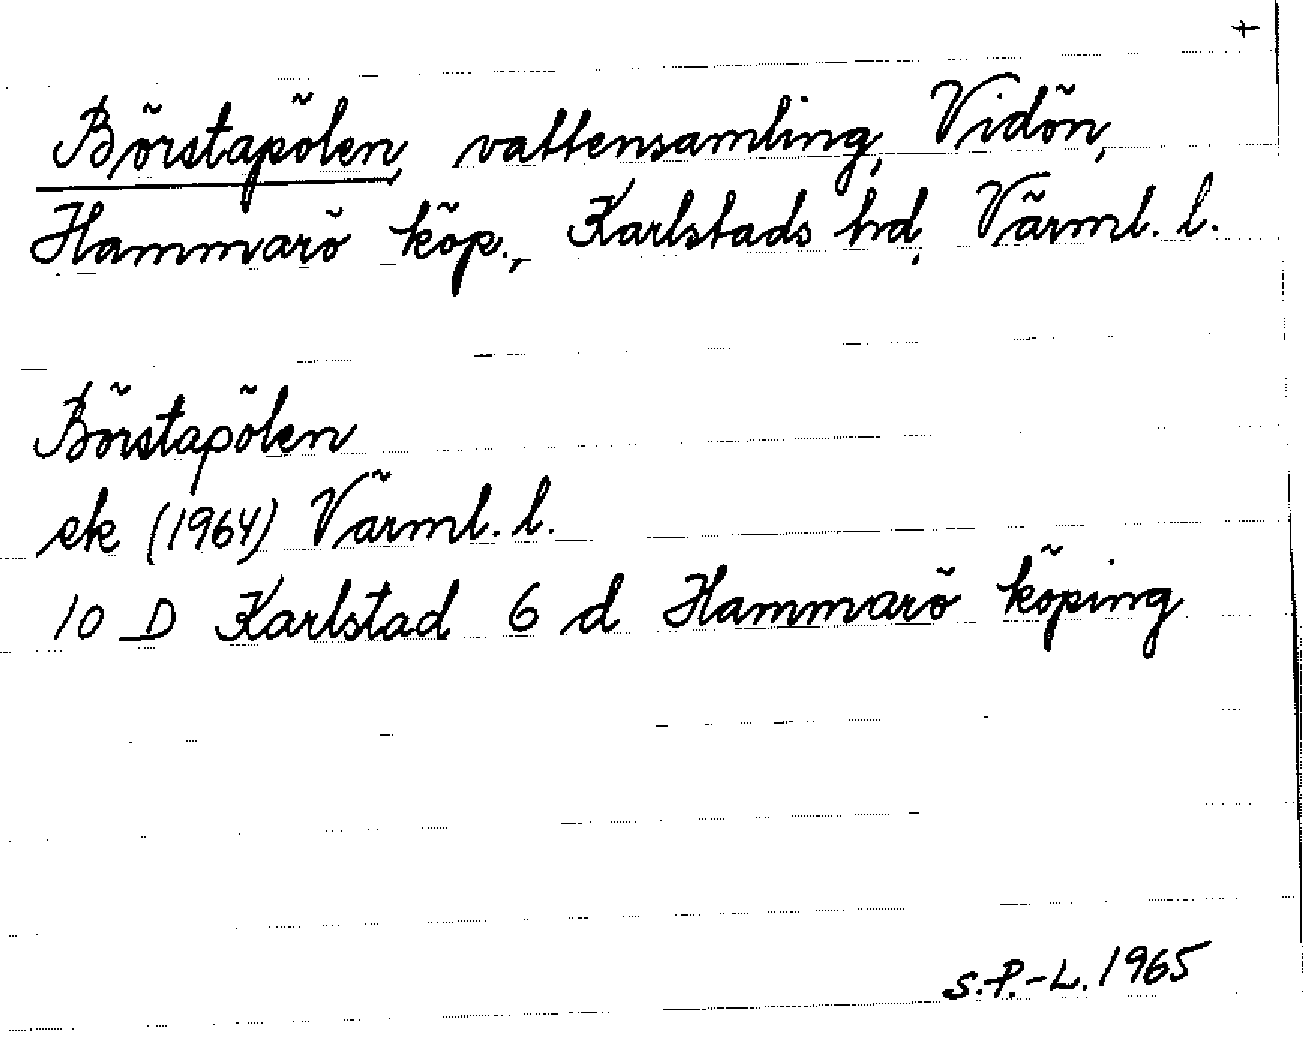 +
Börstapölen, vattensamling, Vidön,
Hammarö köp., Karlstads hd, Värml. l.
Börstapölen
ek (1964) Värml. l.
10 D Karlstad 6 d Hammarö köping
S.-P.-L. 1965